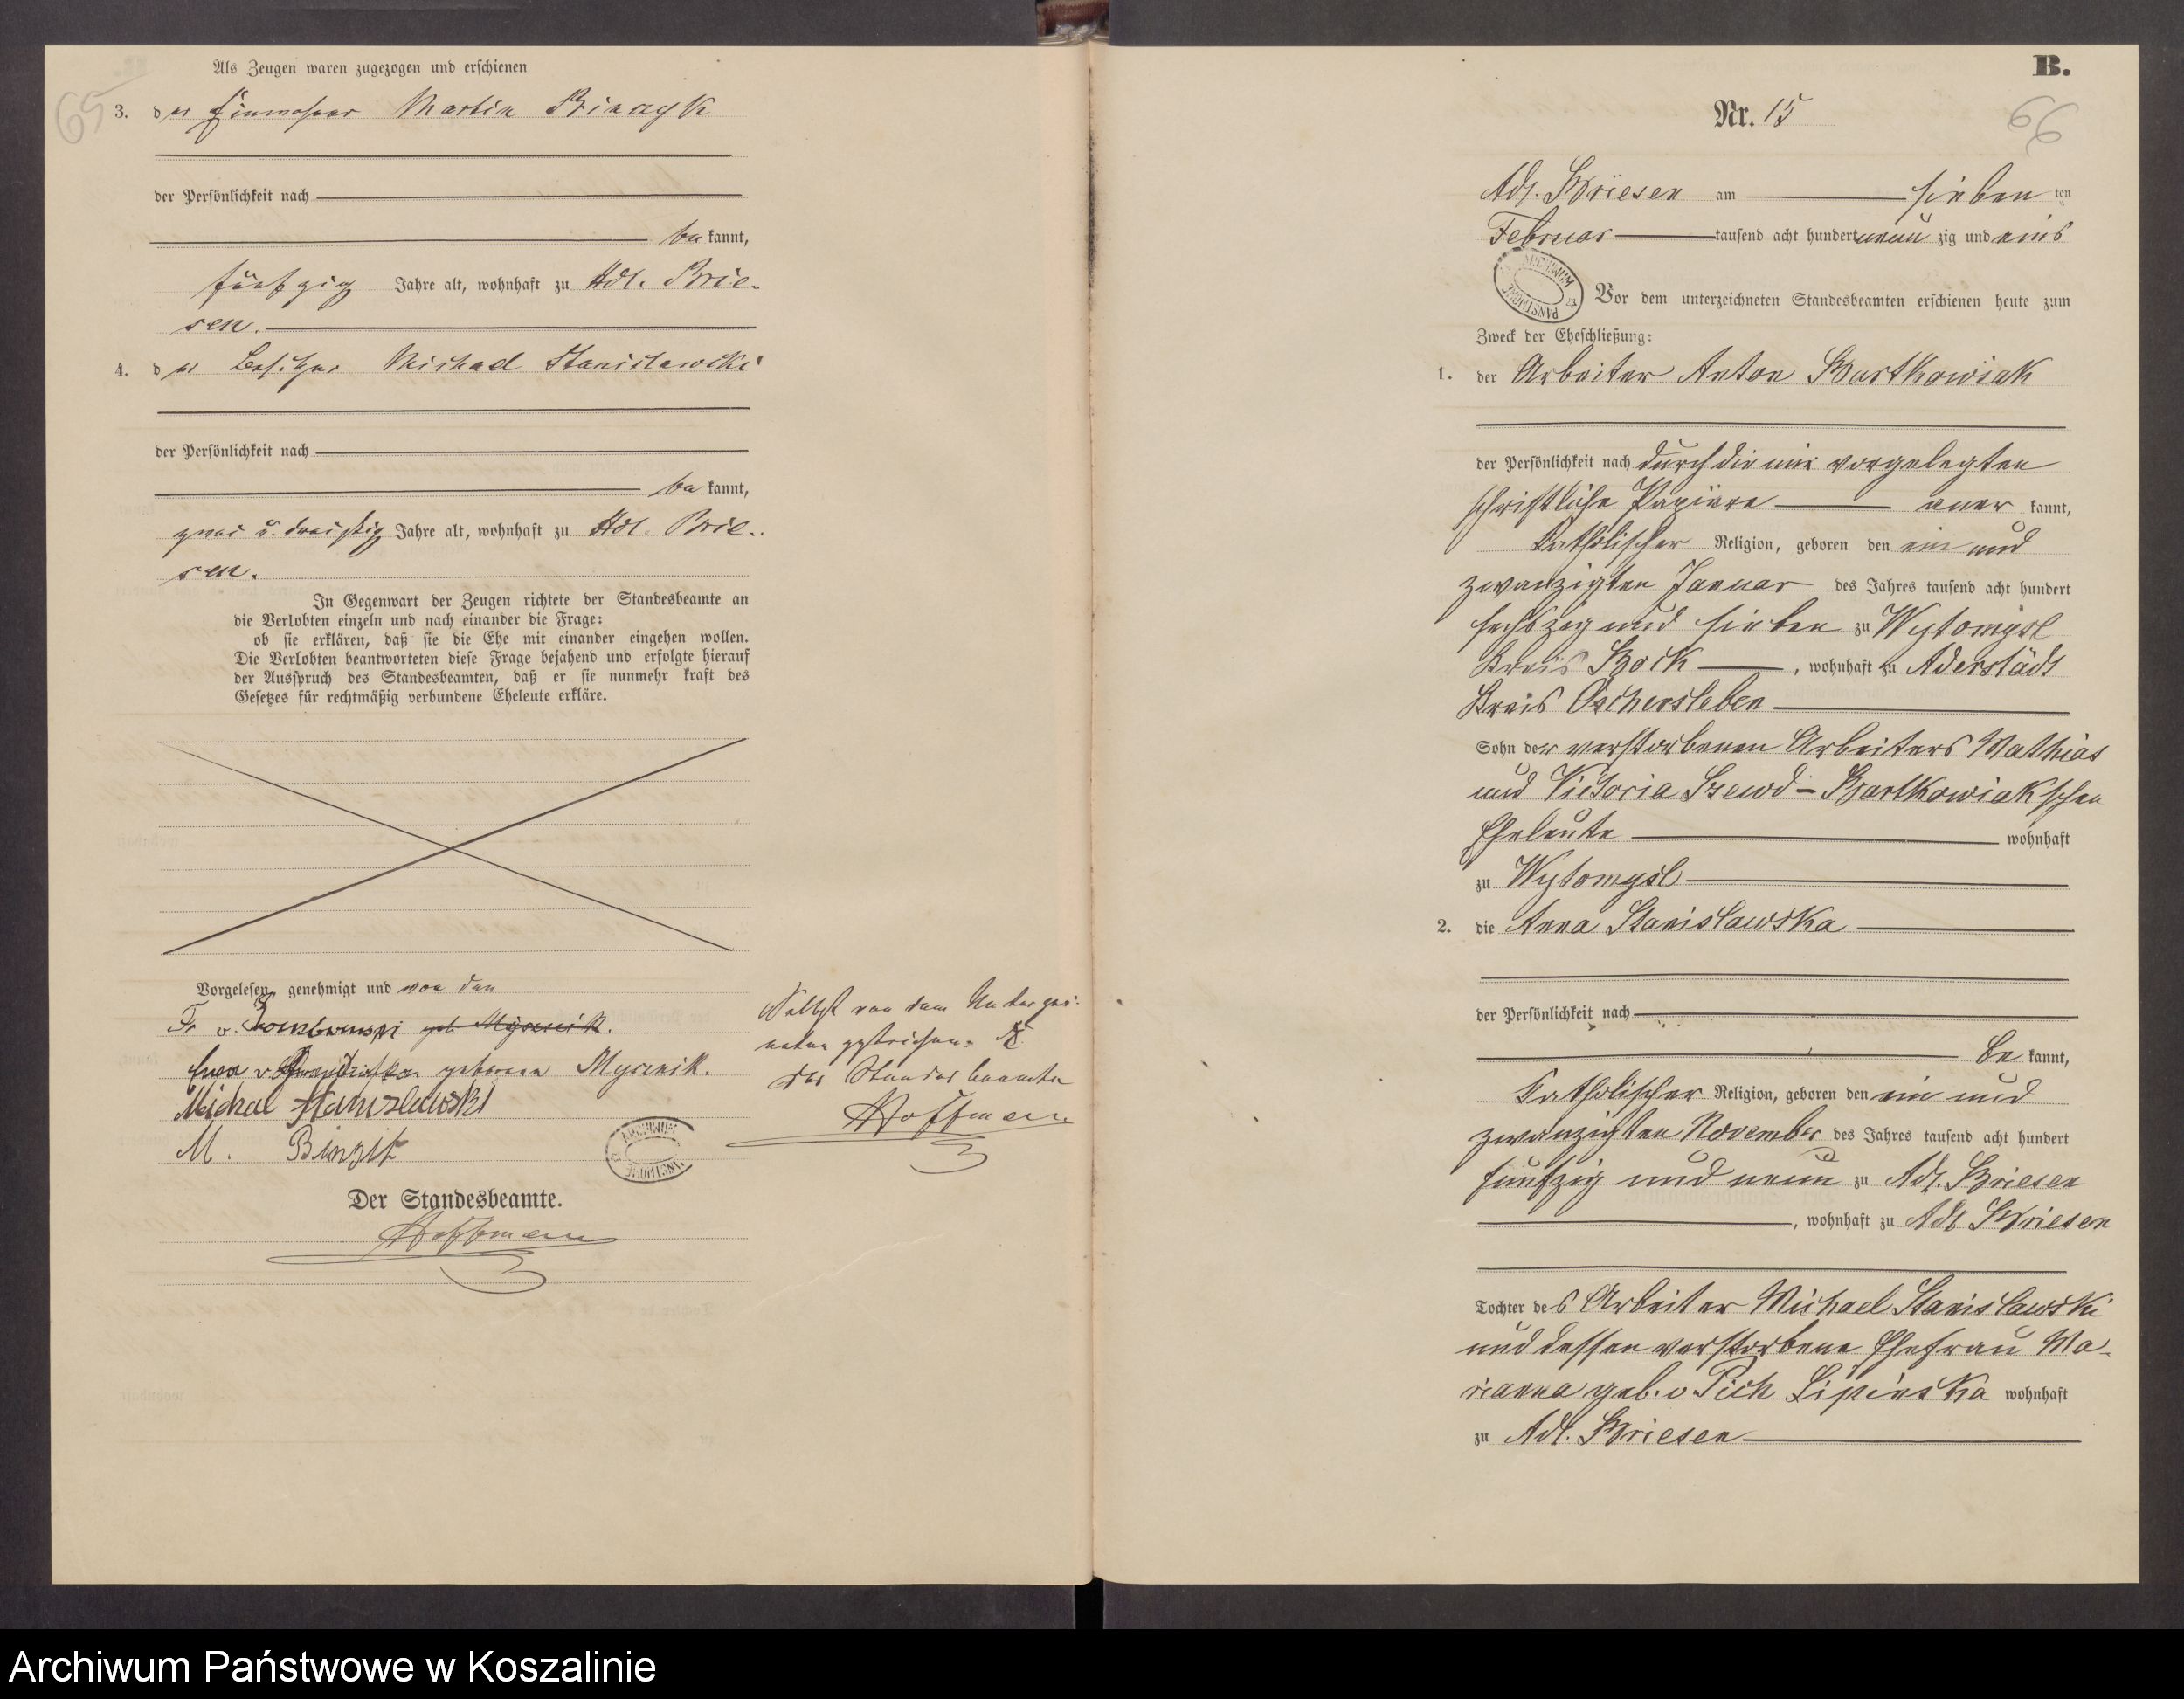 Als Zeugen waren zugezogen und erschienen
65
3. der Einwohner Martin Binczyk
der Persönlichkeit nach
be kannt,
fünfzig Jahre alt, wohnhaft zu Adl. Brie-
sen.
4. der Besitzer Michael Stanislawski
der Persönlichkeit nach
be kannt,
zwei u. dreißig Jahre alt, wohnhaft zu Adl. Brie-
sen.
In Gegenwart der Zeugen richtete der Standesbeamte an
die Verlobten einzeln und nach einander die Frage:
ob sie erklären, daß sie die Ehe mit einander eingehen wollen.
Die Verlobten beantworteten diese Frage bejahend und erfolgte hierauf
der Ausspruch des Standesbeamten, daß er sie nunmehr kraft des
Gesetzes für rechtmäßig verbundene Eheleute erkläre.
Vorgelesen, genehmigt und von den
Fr v.
geborene
Michael Stanislawski
M.
von dem
gestrichen.
Der Standesbeamte
Hoffmann
ARCHIWUM
Der Standesbeamte.
Hoffmann
B.
Nr. 15
66
Adl. Briesen am sieben ten
Februar tausend acht hundert neun zig und eins
ARCHIWUM PAŃSTWOWE
Vor dem unterzeichneten Standesbeamten erschienen heute zum
Zweck der Eheschließung:
1. der Arbeiter Anton Bartkowiak
der Persönlichkeit nach durch die mir vorgelegten
schriftliche Papiere aner kannt,
katholischer Religion, geboren den ein und
zwanzigten Januar des Jahres tausend acht hundert
sechszig und sieben zu Wytomysl
Kreis Bock, wohnhaft zu Aderstädt
Kreis Oschersleben
Sohn der verstorbenen Arbeiters Mathias
und Victoria Szewd-Bartkowiakschen
Eheleute wohnhaft
zu Wytomysl
2. die Anna Stanislawska
der Persönlichkeit nach
be kannt,
katholischer Religion, geboren den ein und
zwanzigten November des Jahres tausend acht hundert
fünfzig und neun zu Adl. Briesen
, wohnhaft zu Adl Briesen
Tochter des Arbeiter Michael Stanislawski
und dessen verstorbene Ehefrau Ma-
rianna geb. v Pich Lipinska wohnhaft
zu Adl. Briesen
Archiwum Państwowe w Koszalinie